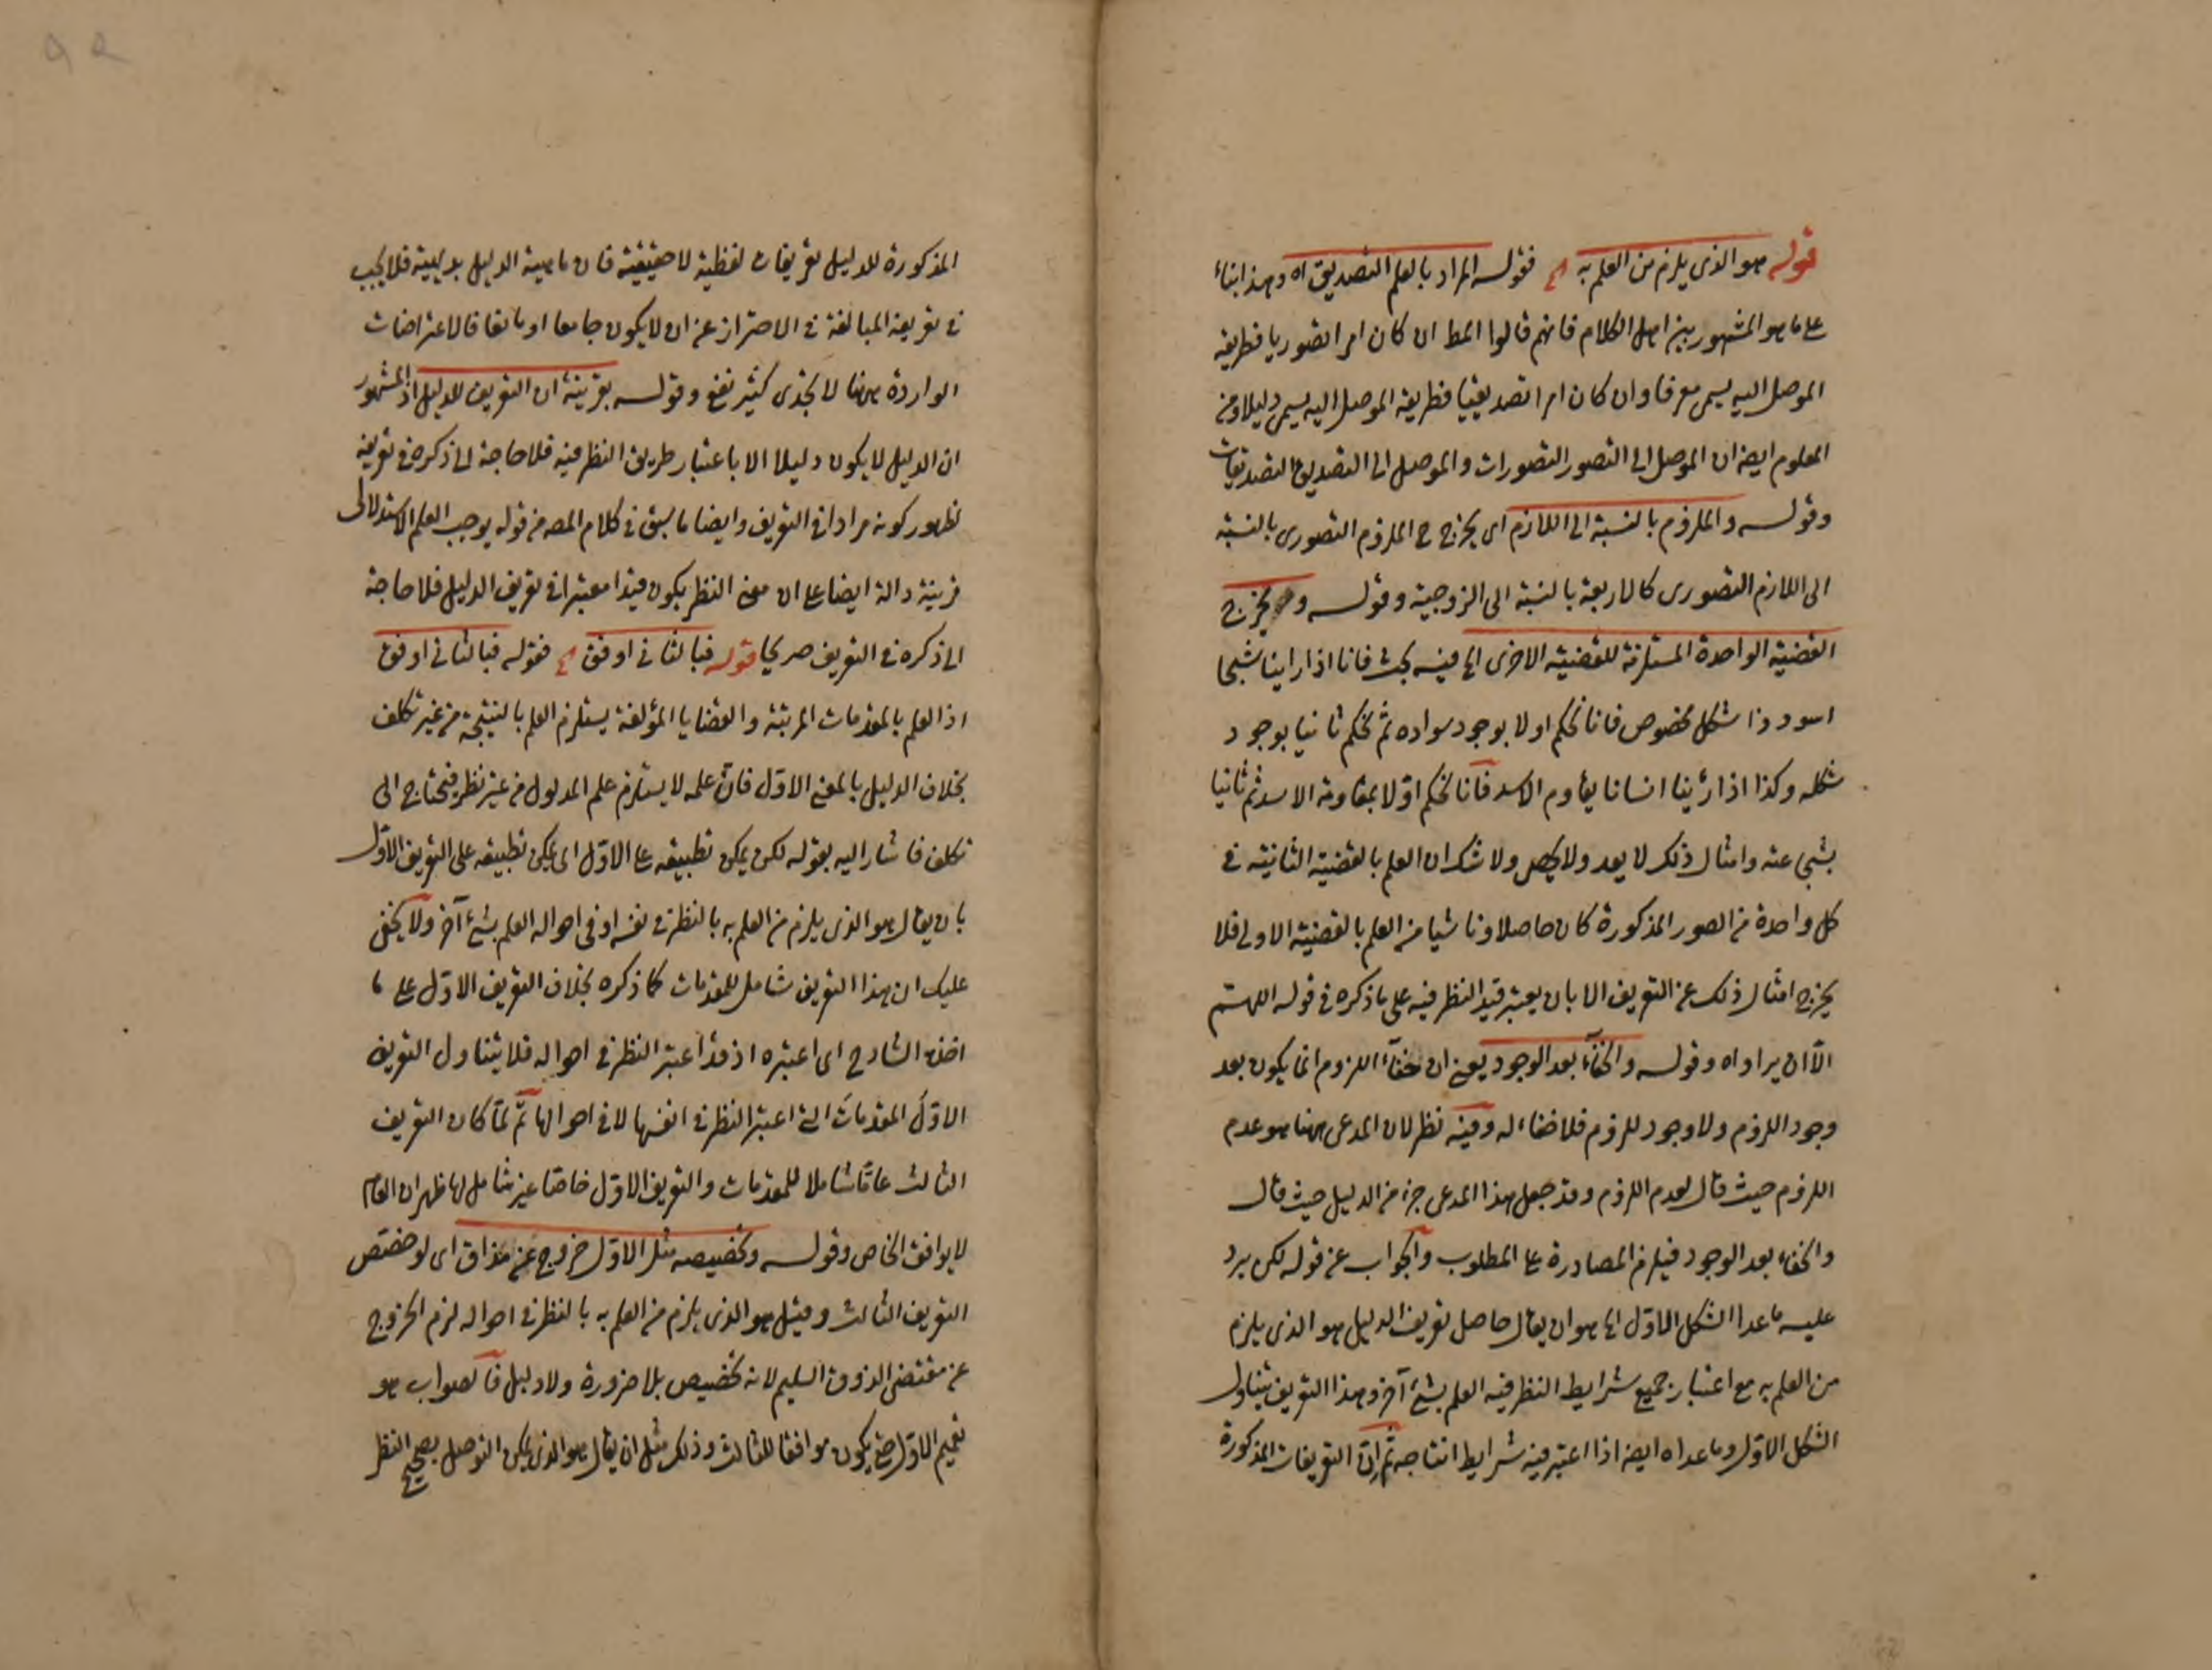 قوله هو الذى يلزم من العلم به الخ فقوله المراد بالعلم التصديق اه وهذا بناء
على ما هو المشهور بين اهل الكلام فانهم قالوا المط ان كان امرا تصوريا فطريقه
الموصل اليه يسمى معرفا وان كان امرا تصديقيا فطريقه الموصل اليه يسمى دليلا ومن
المعلوم ايضا ان الموصل الى التصور التصورات والموصل الى التصديق التصديقات
وقوله والملزوم بالنسبة الى اللازم اى يخرج ح الملزوم التصورى بالنسبة
الى اللازم التصورى كالاربعة بالنسبة الى الزوجية وقوله و يخرج
القضية الواحدة المستلزمة للقضية الاخرى الخ فيه بحث فانا اذا راينا شبحا
اسود ذا شكل مخصوص فانا نحكم اولا بوجود سواده ثم نحكم ثانيا بوجود
شكله وكذا اذا رئينا انسانا يقاوم الاسد فانا نحكم اولا بمقاومة الاسد ثم ثانيا
بشجاعته وامثال ذلك لا يعد ولا يحصى ولا شك ان العلم بالقضية الثانية فى
كل واحدة من الصور المذكورة كان حاصلا وناشيا من العلم بالقضية الاولى فلا
يخرج امثال ذلك عن التعريف الا بان يعتبر قيد النظر فيه على ما ذكره فى قوله اللهم
الا ان يراد اه وقوله والخفاء بعد الوجود يعنى ان خفاء اللزوم انما يكون بعد
وجود اللزوم ولا وجود للزوم فلا خفاء له وفيه نظر لان المدعى ههنا هو عدم
اللزوم حيث قال لعدم اللزوم وقد جعل هذا المدعى جزء من الدليل حيث قال
والخفاء بعد الوجود فيلزم المصادرة على المطلوب والجواب عن قوله لكن يرد
عليه ما عدا الشكل الاول الخ هو ان يقال حاصل تعريف الدليل هو الذى يلزم
من العلم به مع اعتبار جميع شرايط النظر فيه العلم بشئ آخر وهذا التعريف يتناول
الشكل الاول وما عداه ايضا اذا اعتبر فيه شرايط انتاجه ثم ان التعريفات المذكورة
المذكورة للدليل تعريفات لفظية لا حقيقية فان ماهية الدليل بديهية فلا يجب
فى تعريفه المبالغة فى الاحتراز عن ان لا يكون جامعا او مانعا فالاعتراضات
الواردة ههنا لا تجدى كثير نفع وقوله بقرينة ان التعريف للدليل اذ المشهور
ان الدليل لا يكون دليلا الا باعتبار طريق النظر فيه فلا حاجة الى ذكره فى تعريفه
لظهور كونه مرادا فى التعريف وايضا ما سبق فى كلام المصه من قوله يوجب العلم الاستدلالى
قرينة دالة ايضا على ان معنى النظر يكون قيدا معتبرا فى تعريف الدليل فلا حاجة
الى ذكره فى التعريف صريحا قوله فبالثانى اوفق الخ فقوله فبالثانى اوفق
اذ العلم بالمقدمات المرتبة والقضايا المؤلفة يستلزم العلم بالنتيجة من غير تكلف
بخلاف الدليل بالمعنى الاول فان علمه لا يستلزم علم المدلول من غير نظر فيحتاج الى
تكلف فاشار اليه بقوله لكن يمكن تطبيقه على الاول اى يمكن تطبيقه على التعريف الاول
بان يقال هو الذى يلزم من العلم به بالنظر فى نفسه او فى احواله العلم بشئ آخر ولا يخفى
عليك ان هذا التعريف شامل للمقدمات كما ذكره بخلاف التعريف الاول على ما
اخذه الشارح اى اعتبره اذ قد اعتبر النظر فى احواله فلا يتناول التعريف
الاول المقدمات التى اعتبر النظر فى انفسها لا فى احوالها ثم لما كان التعريف
الثالث عاما شاملا للمقدمات والتعريف الاول خاصا غير شامل لها ظهر ان العام
لا يوافق الخاص وقوله وتخصيصه مثل الاول خروج عن مذاق اى لو خصص
التعريف الثالث وقيل هو الذى يلزم من العلم به بالنظر فى احواله لزم الخروج
عن مقتضى الذوق السليم لانه تخصيص بلا ضرورة ولا دليل فالصواب هو
تعميم الاول حتى يكون موافقا للثالث وذلك مثل ان يقال هو الذى يمكن التوصل بصحيح النظر